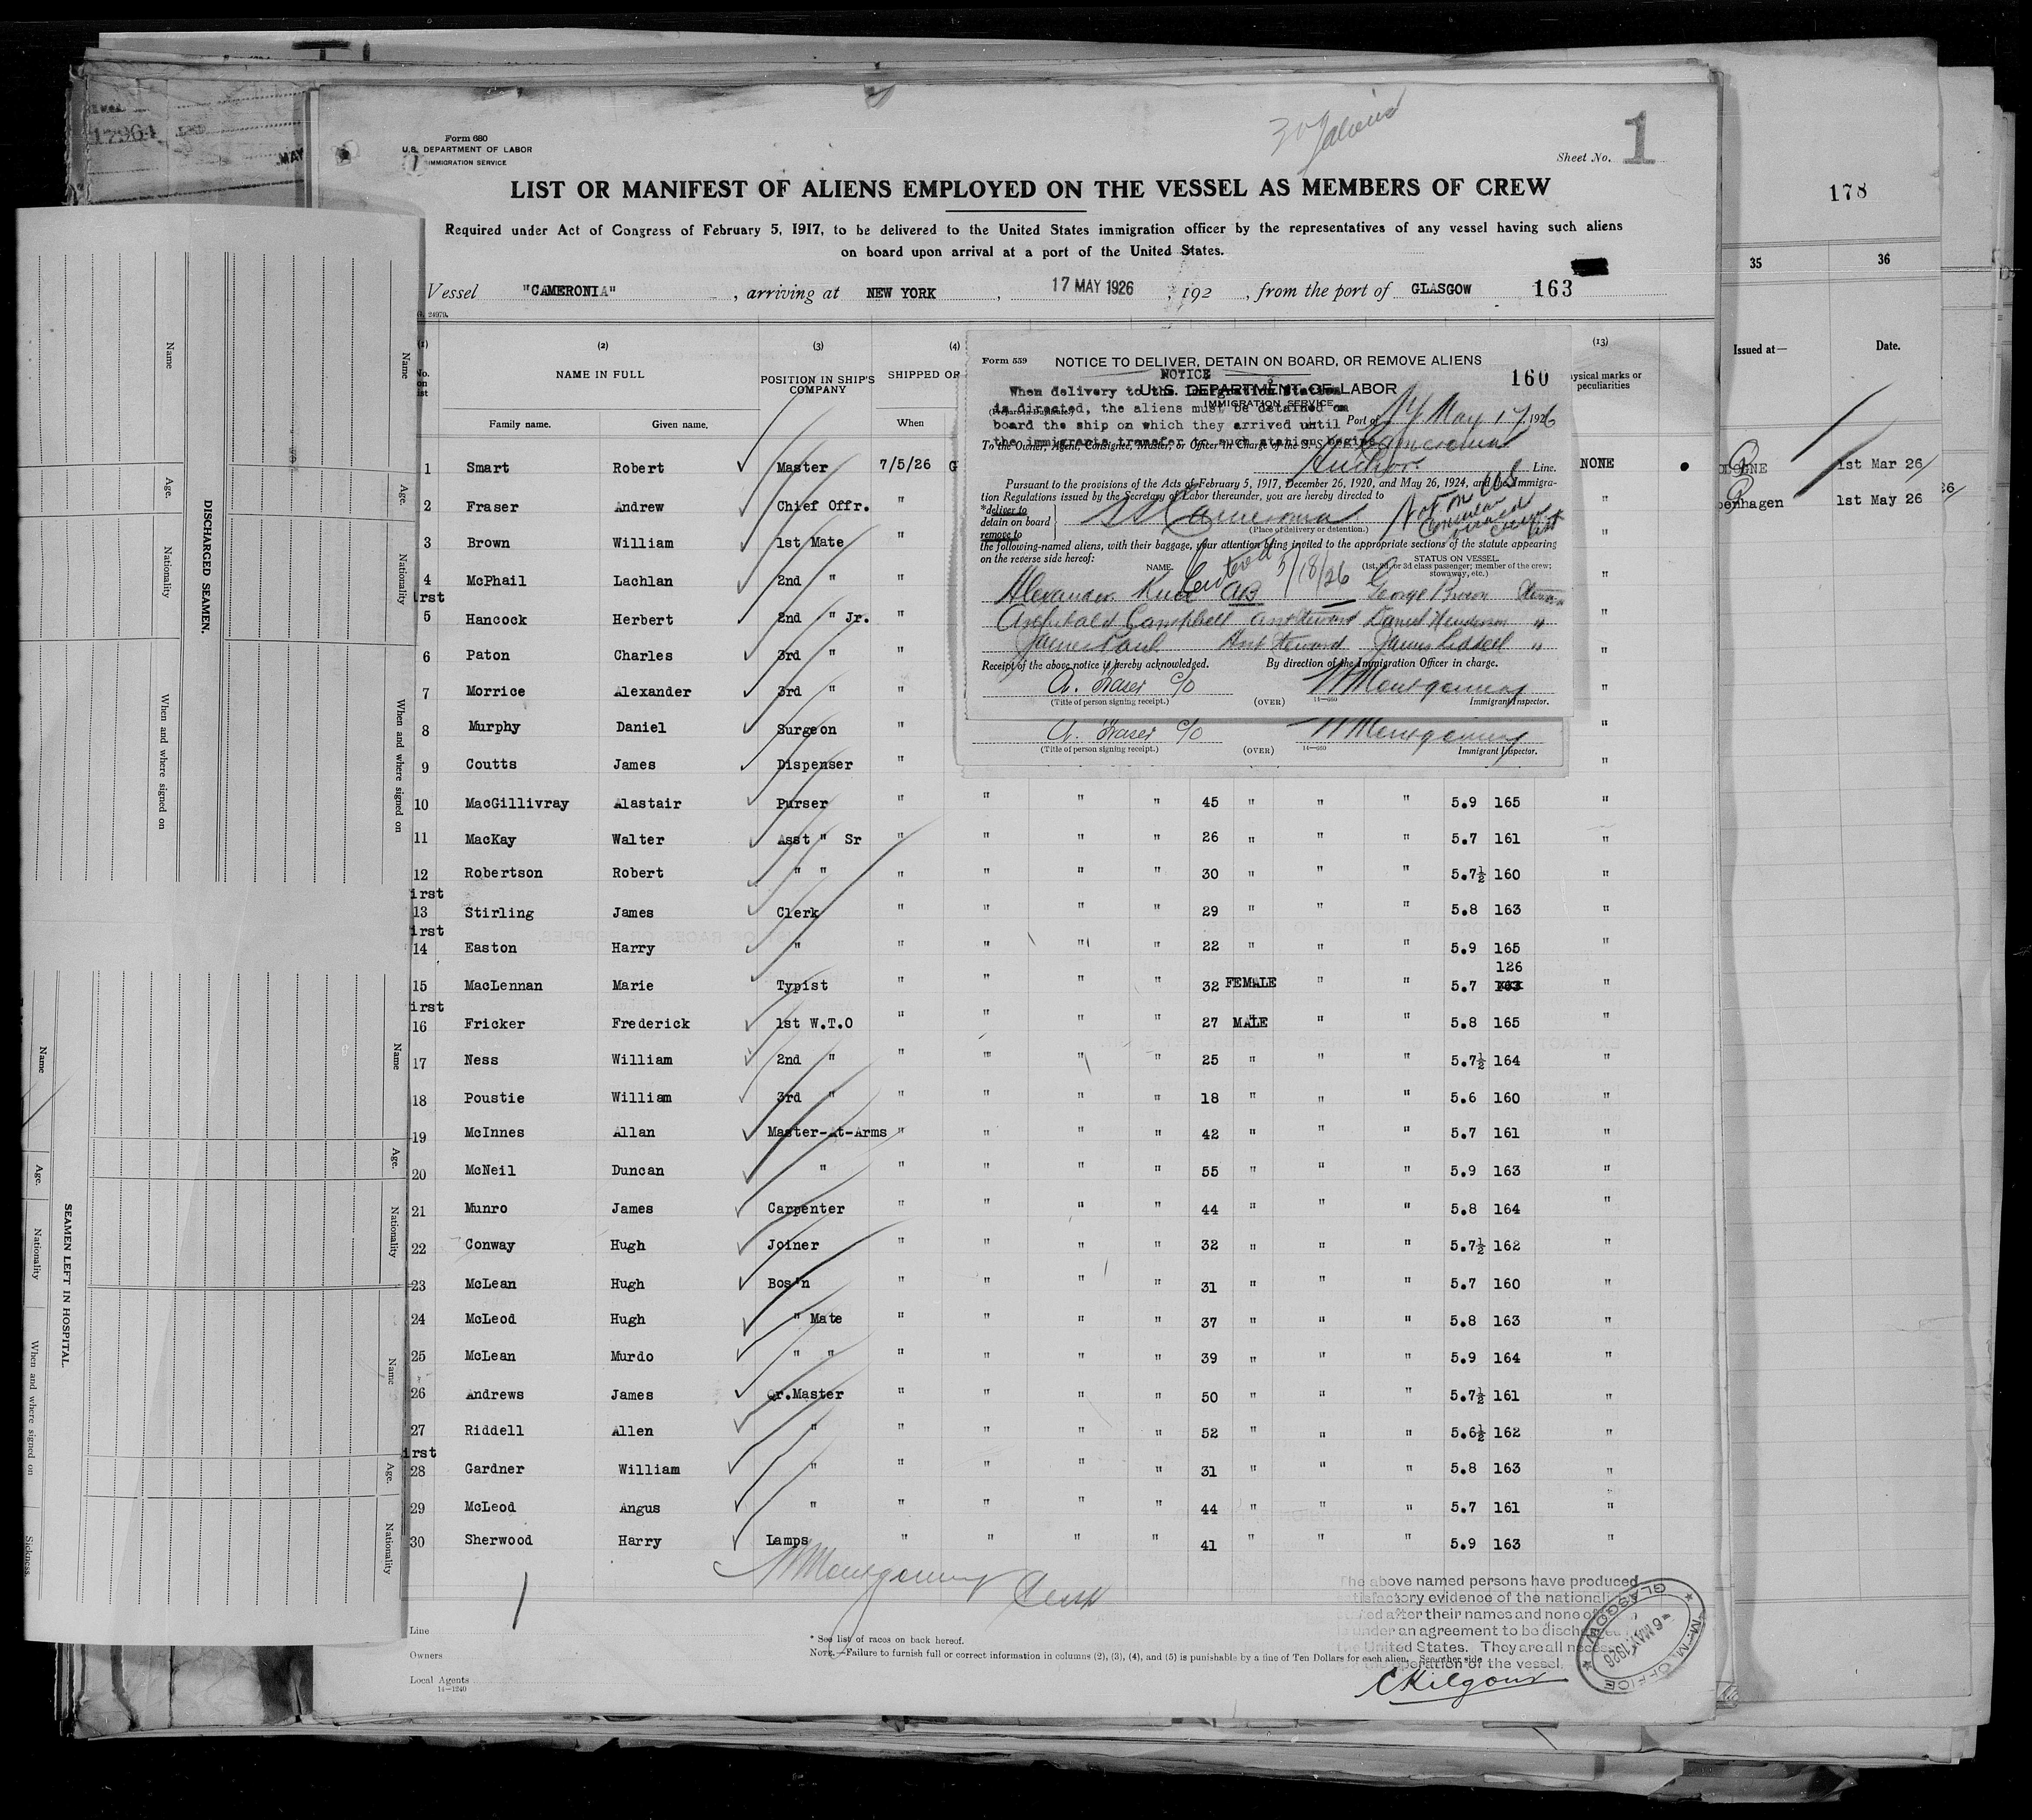 17964
MAY
Form 680
U.S. DEPARTMENT OF LABOR
IMMIGRATION SERVICE
30 aliens
Sheet No. 1
LIST OR MANIFEST OF ALIENS EMPLOYED ON THE VESSEL AS MEMBERS OF CREW
Required under Act of Congress of February 5, 1917, to be delivered to the United States immigration officer by the representatives of any vessel having such aliens
on board upon arrival at a port of the United States.
Vessel "CAMERONIA", arriving at NEW YORK, 17 MAY 1926, 192 , from the port of GLASGOW 163
(1) (2) (3) (4) (13)
No. on list NAME IN FULL POSITION IN SHIP'S COMPANY SHIPPED OR Physical marks or peculiarities
Family name. Given name. When
1 Smart Robert Master 7/5/26 G NONE
2 Fraser Andrew Chief Offr. " "
3 Brown William 1st Mate " "
4 McPhail Lachlan 2nd " " "
irst
5 Hancock Herbert 2nd " Jr. " "
6 Paton Charles 3rd " " "
7 Morrice Alexander 3rd " " "
8 Murphy Daniel Surgeon " "
9 Coutts James Dispenser " "
10 MacGillivray Alastair Purser " " " " 45 " " " 5.9 165 "
11 MacKay Walter Asst " Sr " " " " 26 " " " 5.7 161 "
12 Robertson Robert " " " " " " 30 " " " 5.7½ 160 "
irst
13 Stirling James Clerk " " " " 29 " " " 5.8 163 "
irst
14 Easton Harry " " " " " 22 " " " 5.9 165 "
126
15 MacLennan Marie Typist " " " " 32 FEMALE " " 5.7 163 "
irst
16 Fricker Frederick 1st W.T.O " " " " 27 MALE " " 5.8 165 "
17 Ness William 2nd " " " " " 25 " " " 5.7½ 164 "
18 Poustie William 3rd " " " " " 18 " " " 5.6 160 "
19 McInnes Allan Master-At-Arms " " " " 42 " " " 5.7 161 "
20 McNeil Duncan " " " " " 55 " " " 5.9 163 "
21 Munro James Carpenter " " " " 44 " " " 5.8 164 "
22 Conway Hugh Joiner " " " " 32 " " " 5.7½ 162 "
23 McLean Hugh Bos'n " " " " 31 " " " 5.7 160 "
24 McLeod Hugh " Mate " " " " 37 " " " 5.8 163 "
25 McLean Murdo " " " " " " 39 " " " 5.9 164 "
26 Andrews James Qr.Master " " " " 50 " " " 5.7½ 161 "
27 Riddell Allen " " " " " 52 " " " 5.6½ 162 "
irst
28 Gardner William " " " " " 31 " " " 5.8 163 "
29 McLeod Angus " " " " " 44 " " " 5.7 161 "
30 Sherwood Harry Lamps " " " " 41 " " 5.9 163 "
W Montgomery
Line
Owners
Local Agents
14—1240
* See list of races on back hereof.
NOTE.—Failure to furnish full or correct information in columns (2), (3), (4), and (5) is punishable by a fine of Ten Dollars for each alien. See other side
The above named persons have produced
satisfactory evidence of the nationality
after their names and none of
under an agreement to be discharged
the United States. They are all
the operation of the vessel.
C Kilgour
M.M. OFFICE
6 MAY 1926
GLASGOW
Form 559
NOTICE TO DELIVER, DETAIN ON BOARD, OR REMOVE ALIENS
160
U.S. DEPARTMENT OF LABOR
IMMIGRATION SERVICE
NOTICE
When delivery to the Immigration Station
is directed, the aliens must be detained on
board the ship on which they arrived until
the immigrants transfer to such station begins
Port of N Y May 17, 1926
To the Owner, Agent, Consignee, Master, or Officer in Charge of the S. S. Cameronia
Anchor Line.
Pursuant to the provisions of the Acts of February 5, 1917, December 26, 1920, and May 26, 1924, and the Immigra-
tion Regulations issued by the Secretary of Labor thereunder, you are hereby directed to
*deliver to
detain on board
remove to
SS Cameronia
(Place of delivery or detention.)
Not on
crew list
the following-named aliens, with their baggage, your attention being invited to the appropriate sections of the statute appearing
on the reverse side hereof:
NAME.
STATUS ON VESSEL.
(1st, 2d, or 3d class passenger; member of the crew;
stowaway, etc.)
5/18/26
Alexander AB George Brown
Archibald Campbell asst steward Daniel Henderson "
James Paul Asst Steward James Liddell "
Receipt of the above notice is hereby acknowledged.
By direction of the Immigration Officer in charge.
A. Fraser C/O W Montgomery
(Title of person signing receipt.) (OVER) 14—660 Immigrant Inspector.
A. Fraser C/O W Montgomery
(Title of person signing receipt.) (OVER) 14—660 Immigrant Inspector.
178
35 36
Issued at— Date.
1st Mar 26
penhagen 1st May 26
DISCHARGED SEAMEN.
Name
Age.
Nationality
When and where signed on
Name
Age.
Nationality
When and where signed on
SEAMEN LEFT IN HOSPITAL.
Name
Age.
Nationality
When and where signed on
Sickness.
Name
Age.
Nationality
Name
Age.
Nationality